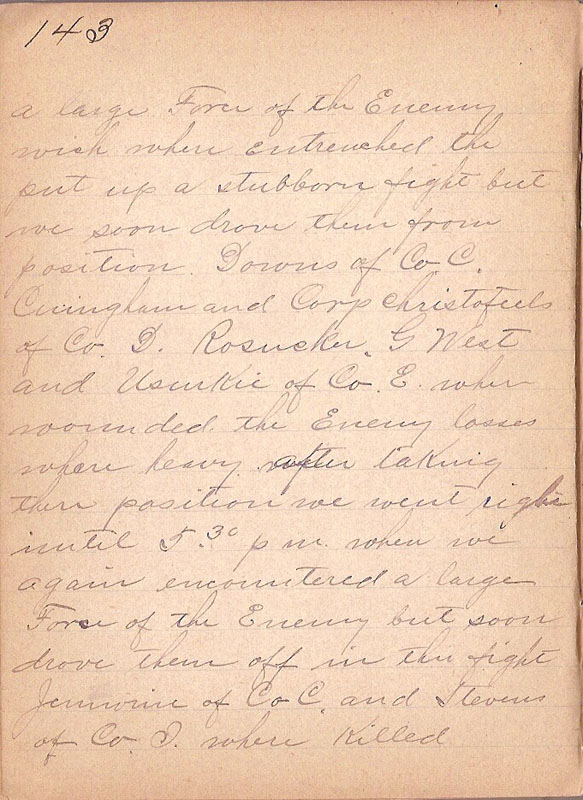 143
a large Force of the Enemy
wich where entrenched the
put up a stubborn fight but
we soon drove them from
position. Downs of Co C.
Cuningham and Corp Christofeels
of Co. D. Rosucker, G West
and of Co. E. when
wounded. the Enemy losses
where heavy after taking
then position we went right
until 5.30 p m. when we
again encountered a large
Force of the Enemy but soon
drove them off in this fight
of Co C. and Stevens
of Co. I. where Killed